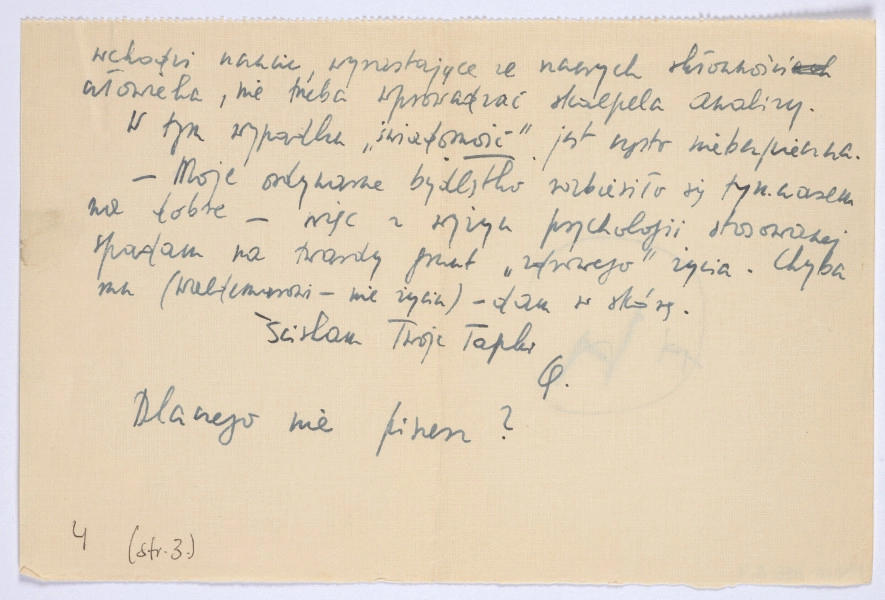 wchodzi nawias, wyrastające ze naszych skłonności
człowieka, nie trzeba wprowadzać skalpela analizy.
W tym wypadku „świadomość” jest czysto niebezpieczna.
– Moje ordynarne bydlątko rozbiesiło się tymczasem
na dobre – więc z wyżyn psychologii stosowanej
spadam na twardy grunt „zdrowego” życia. Chyba
mu (Waldemarowi – nie życiu) – dam w skórę.
Ściskam Twoje łapki
Dlaczego nie piszesz?
4 (str. 3.)